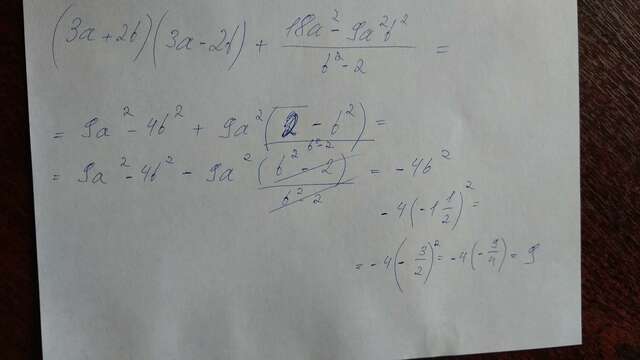 (3a+2b)(3a-2b) + (18a² - 9a²b²)/(b² - 2) =
= 9a² - 4b² + 9a²(2 - b²)/(b² - 2) =
= 9a² - 4b² - 9a²(b² - 2)/(b² - 2) = -4b²
-4(-1 1/2)² =
= -4(-3/2)² = -4(-9/4) = 9